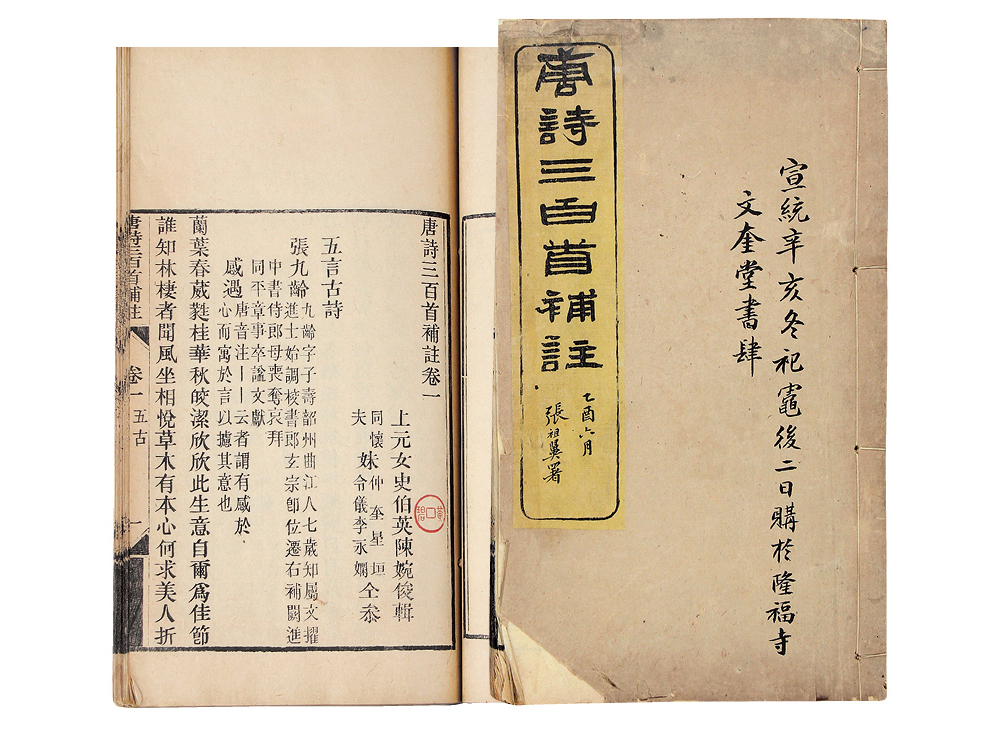 宣統辛亥冬祀竈後二日購於隆福寺
文奎堂書肆
唐詩三百首補註
乙酉六月
張祖翼署
唐詩三百首補註卷一
上元女史伯英陳婉俊輯
同懷妹仲奎星垣仝叅
夫妹令儀李永嫻
五言古詩
張九齡九齡字子壽韶州曲江人七歲知屬文擢
進士始調校書郎玄宗卽位遷右補闕進
中書侍郎母喪奪哀拜
同平章事卒謚文獻
感遇唐音注丨丨云者謂有感於
心而寓於言以攄其意也
蘭葉春葳蕤桂華秋皎潔欣欣此生意自爾爲佳節
誰知林棲者聞風坐相悅草木有本心何求美人折
唐詩三百首補註
卷一
五古
一